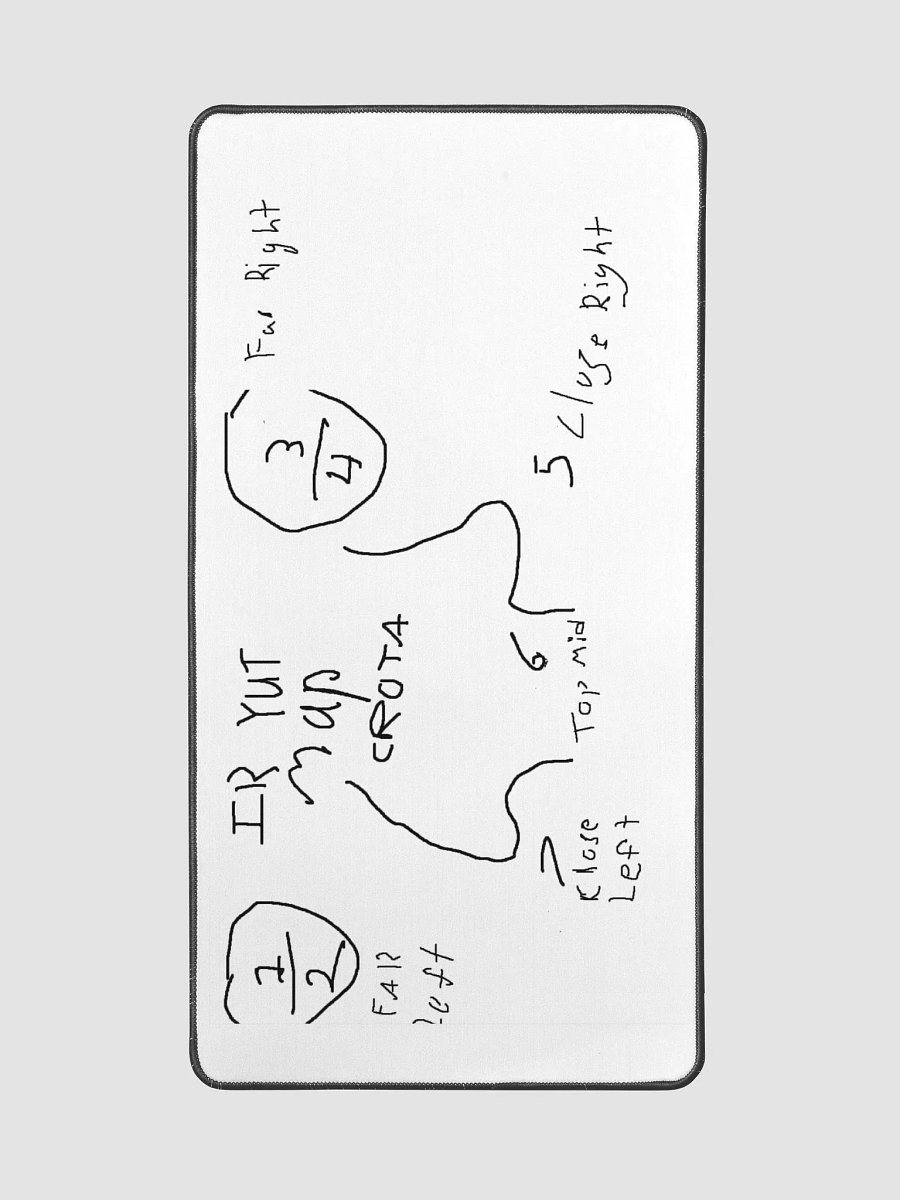 IR YUT
map
CROTA
1
2
FAR
left
3
4
Far Right
7
Close
Left
6
Top Mid
5 Close Right